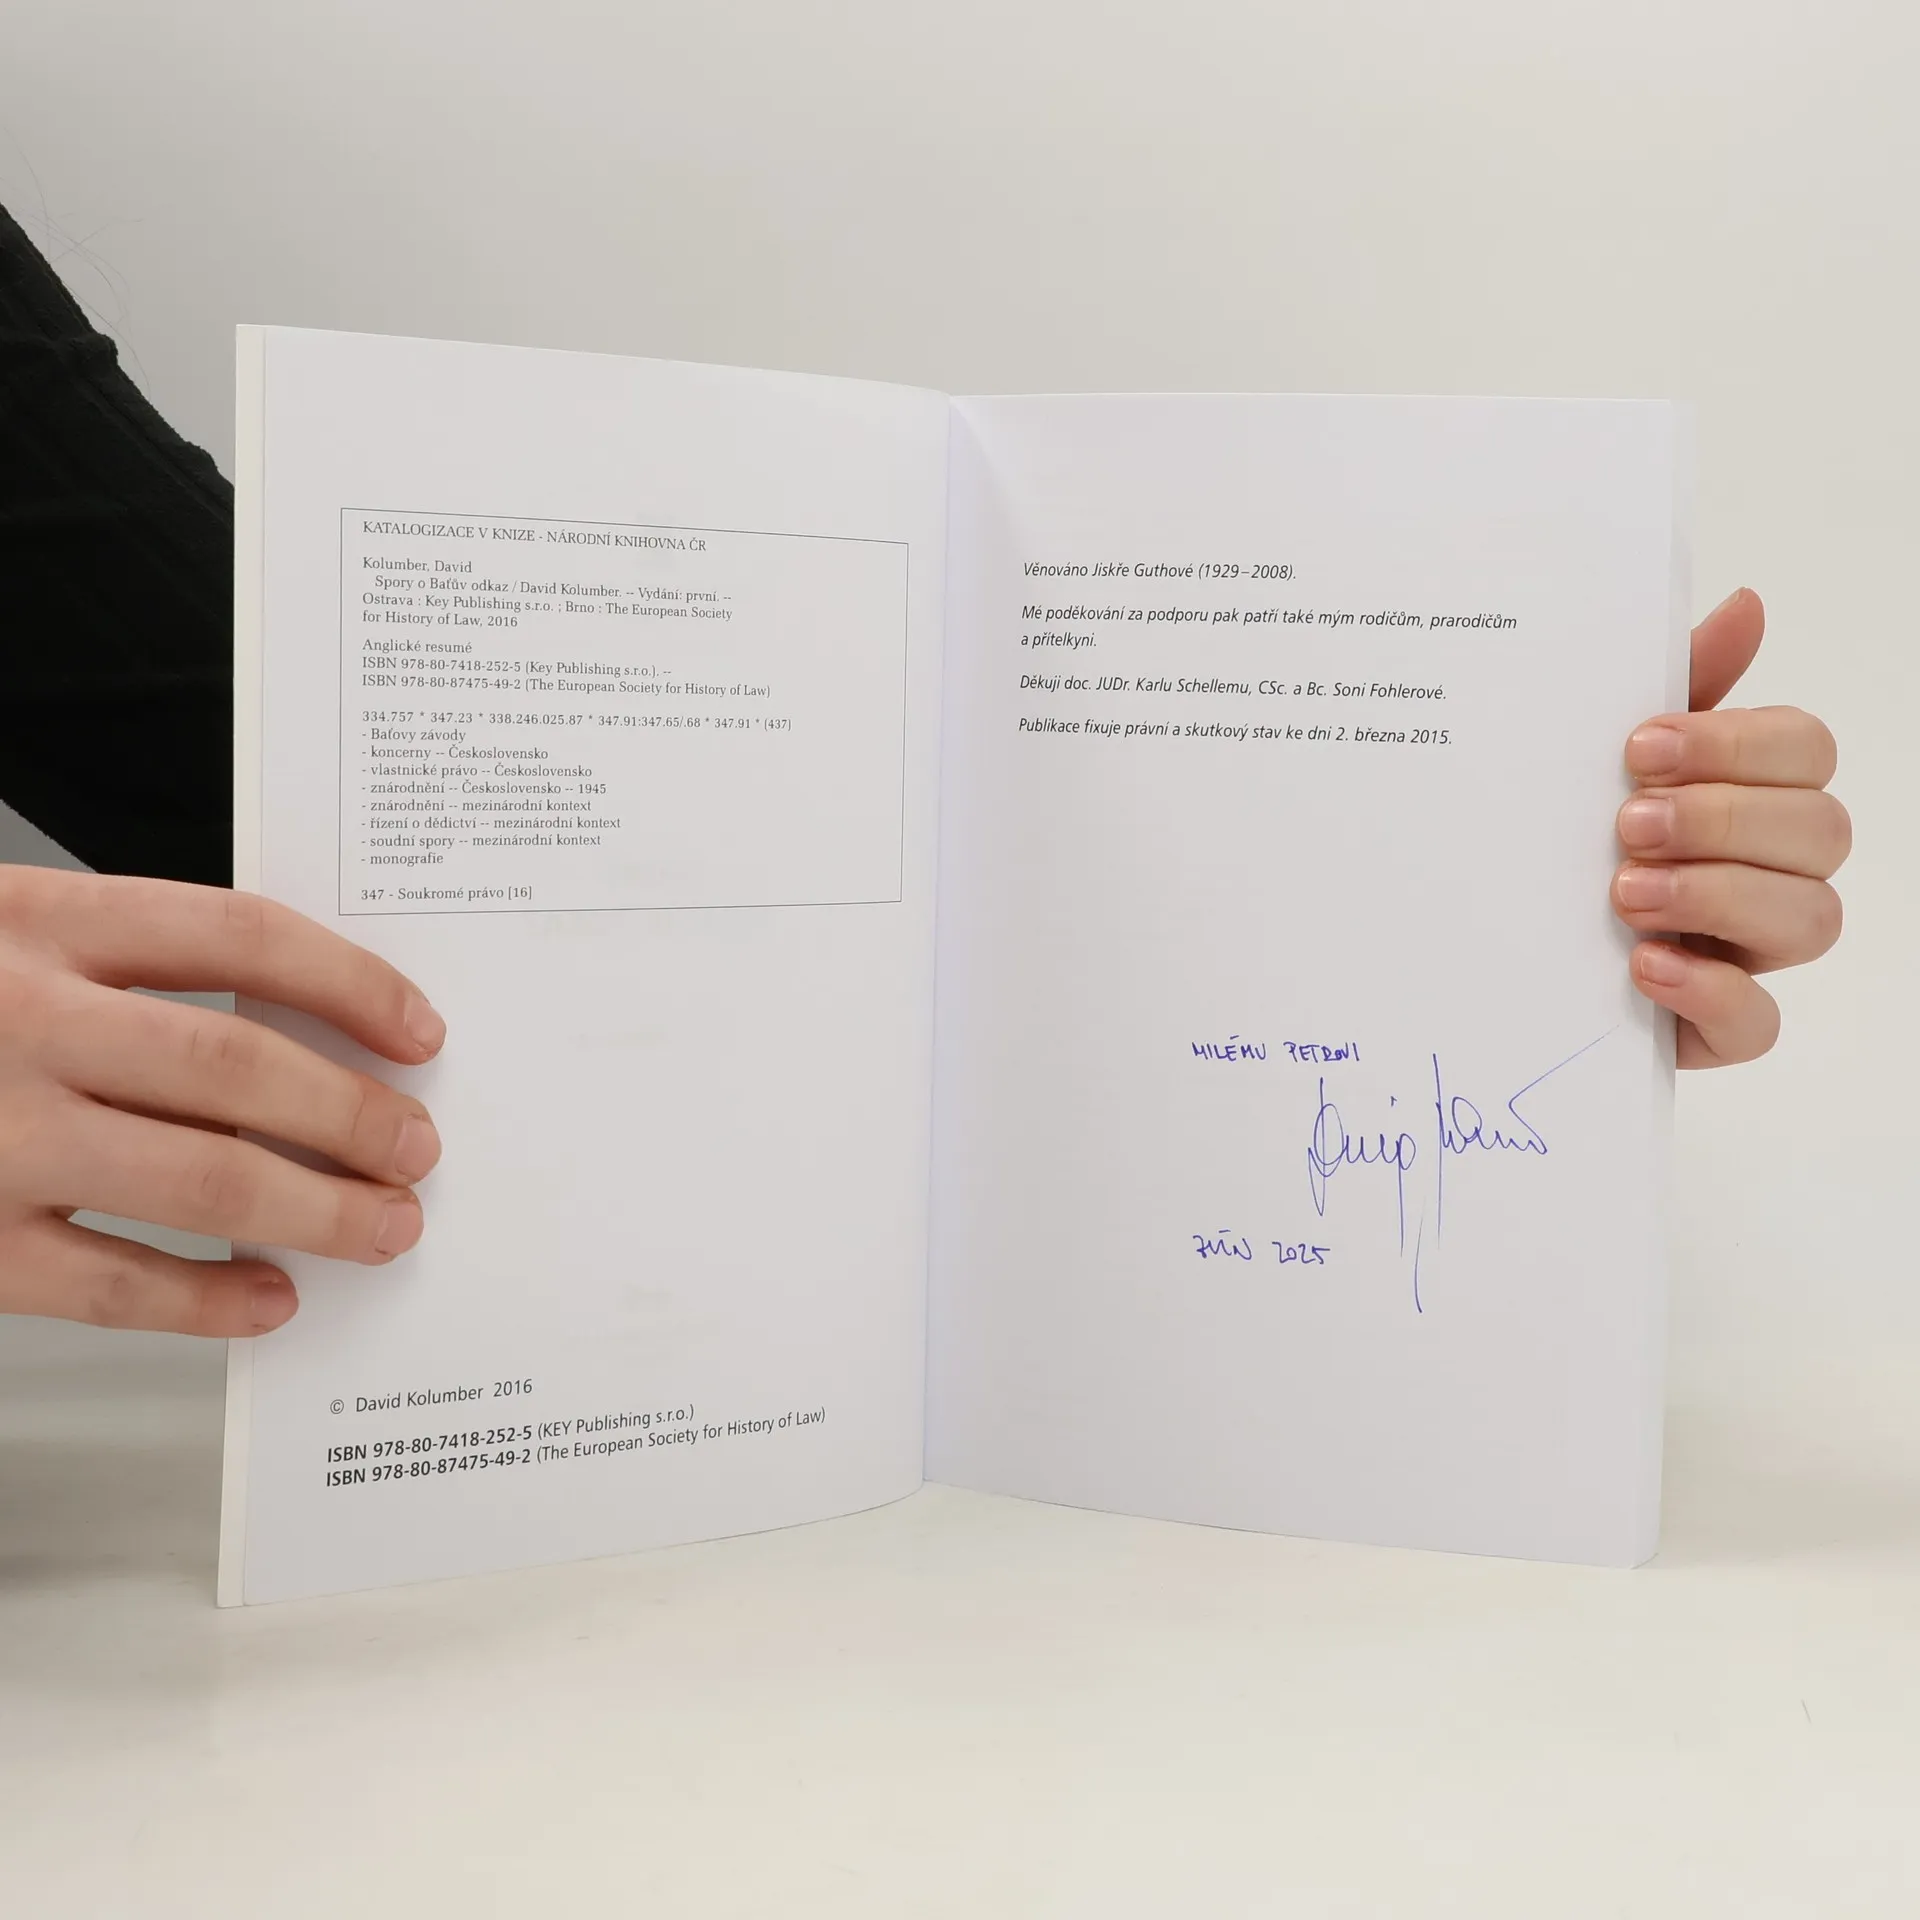 KATALOGIZACE V KNIZE - NÁRODNÍ KNIHOVNA ČR
Kolumber, David
Spory o Baťův odkaz / David Kolumber. -- Vydání: první. --
Ostrava : Key Publishing s.r.o. ; Brno : The European Society
for History of Law, 2016
Anglické resumé
ISBN 978-80-7418-252-5 (Key Publishing s.r.o.). --
ISBN 978-80-87475-49-2 (The European Society for History of Law)
334.757 * 347.23 * 338.246.025.87 * 347.91:347.65/.68 * 347.91 * (437)
- Baťovy závody
- koncerny -- Československo
- vlastnické právo -- Československo
- znárodnění -- Československo -- 1945
- znárodnění -- mezinárodní kontext
- řízení o dědictví -- mezinárodní kontext
- soudní spory -- mezinárodní kontext
- monografie
347 - Soukromé právo [16]
© David Kolumber 2016
ISBN 978-80-7418-252-5 (KEY Publishing s.r.o.)
ISBN 978-80-87475-49-2 (The European Society for History of Law)
Věnováno Jiskře Guthové (1929–2008).
Mé poděkování za podporu pak patří také mým rodičům, prarodičům
a přítelkyni.
Děkuji doc. JUDr. Karlu Schellemu, CSc. a Bc. Soni Fohlerové.
Publikace fixuje právní a skutkový stav ke dni 2. března 2015.
MILÉMU PETROVI
2025